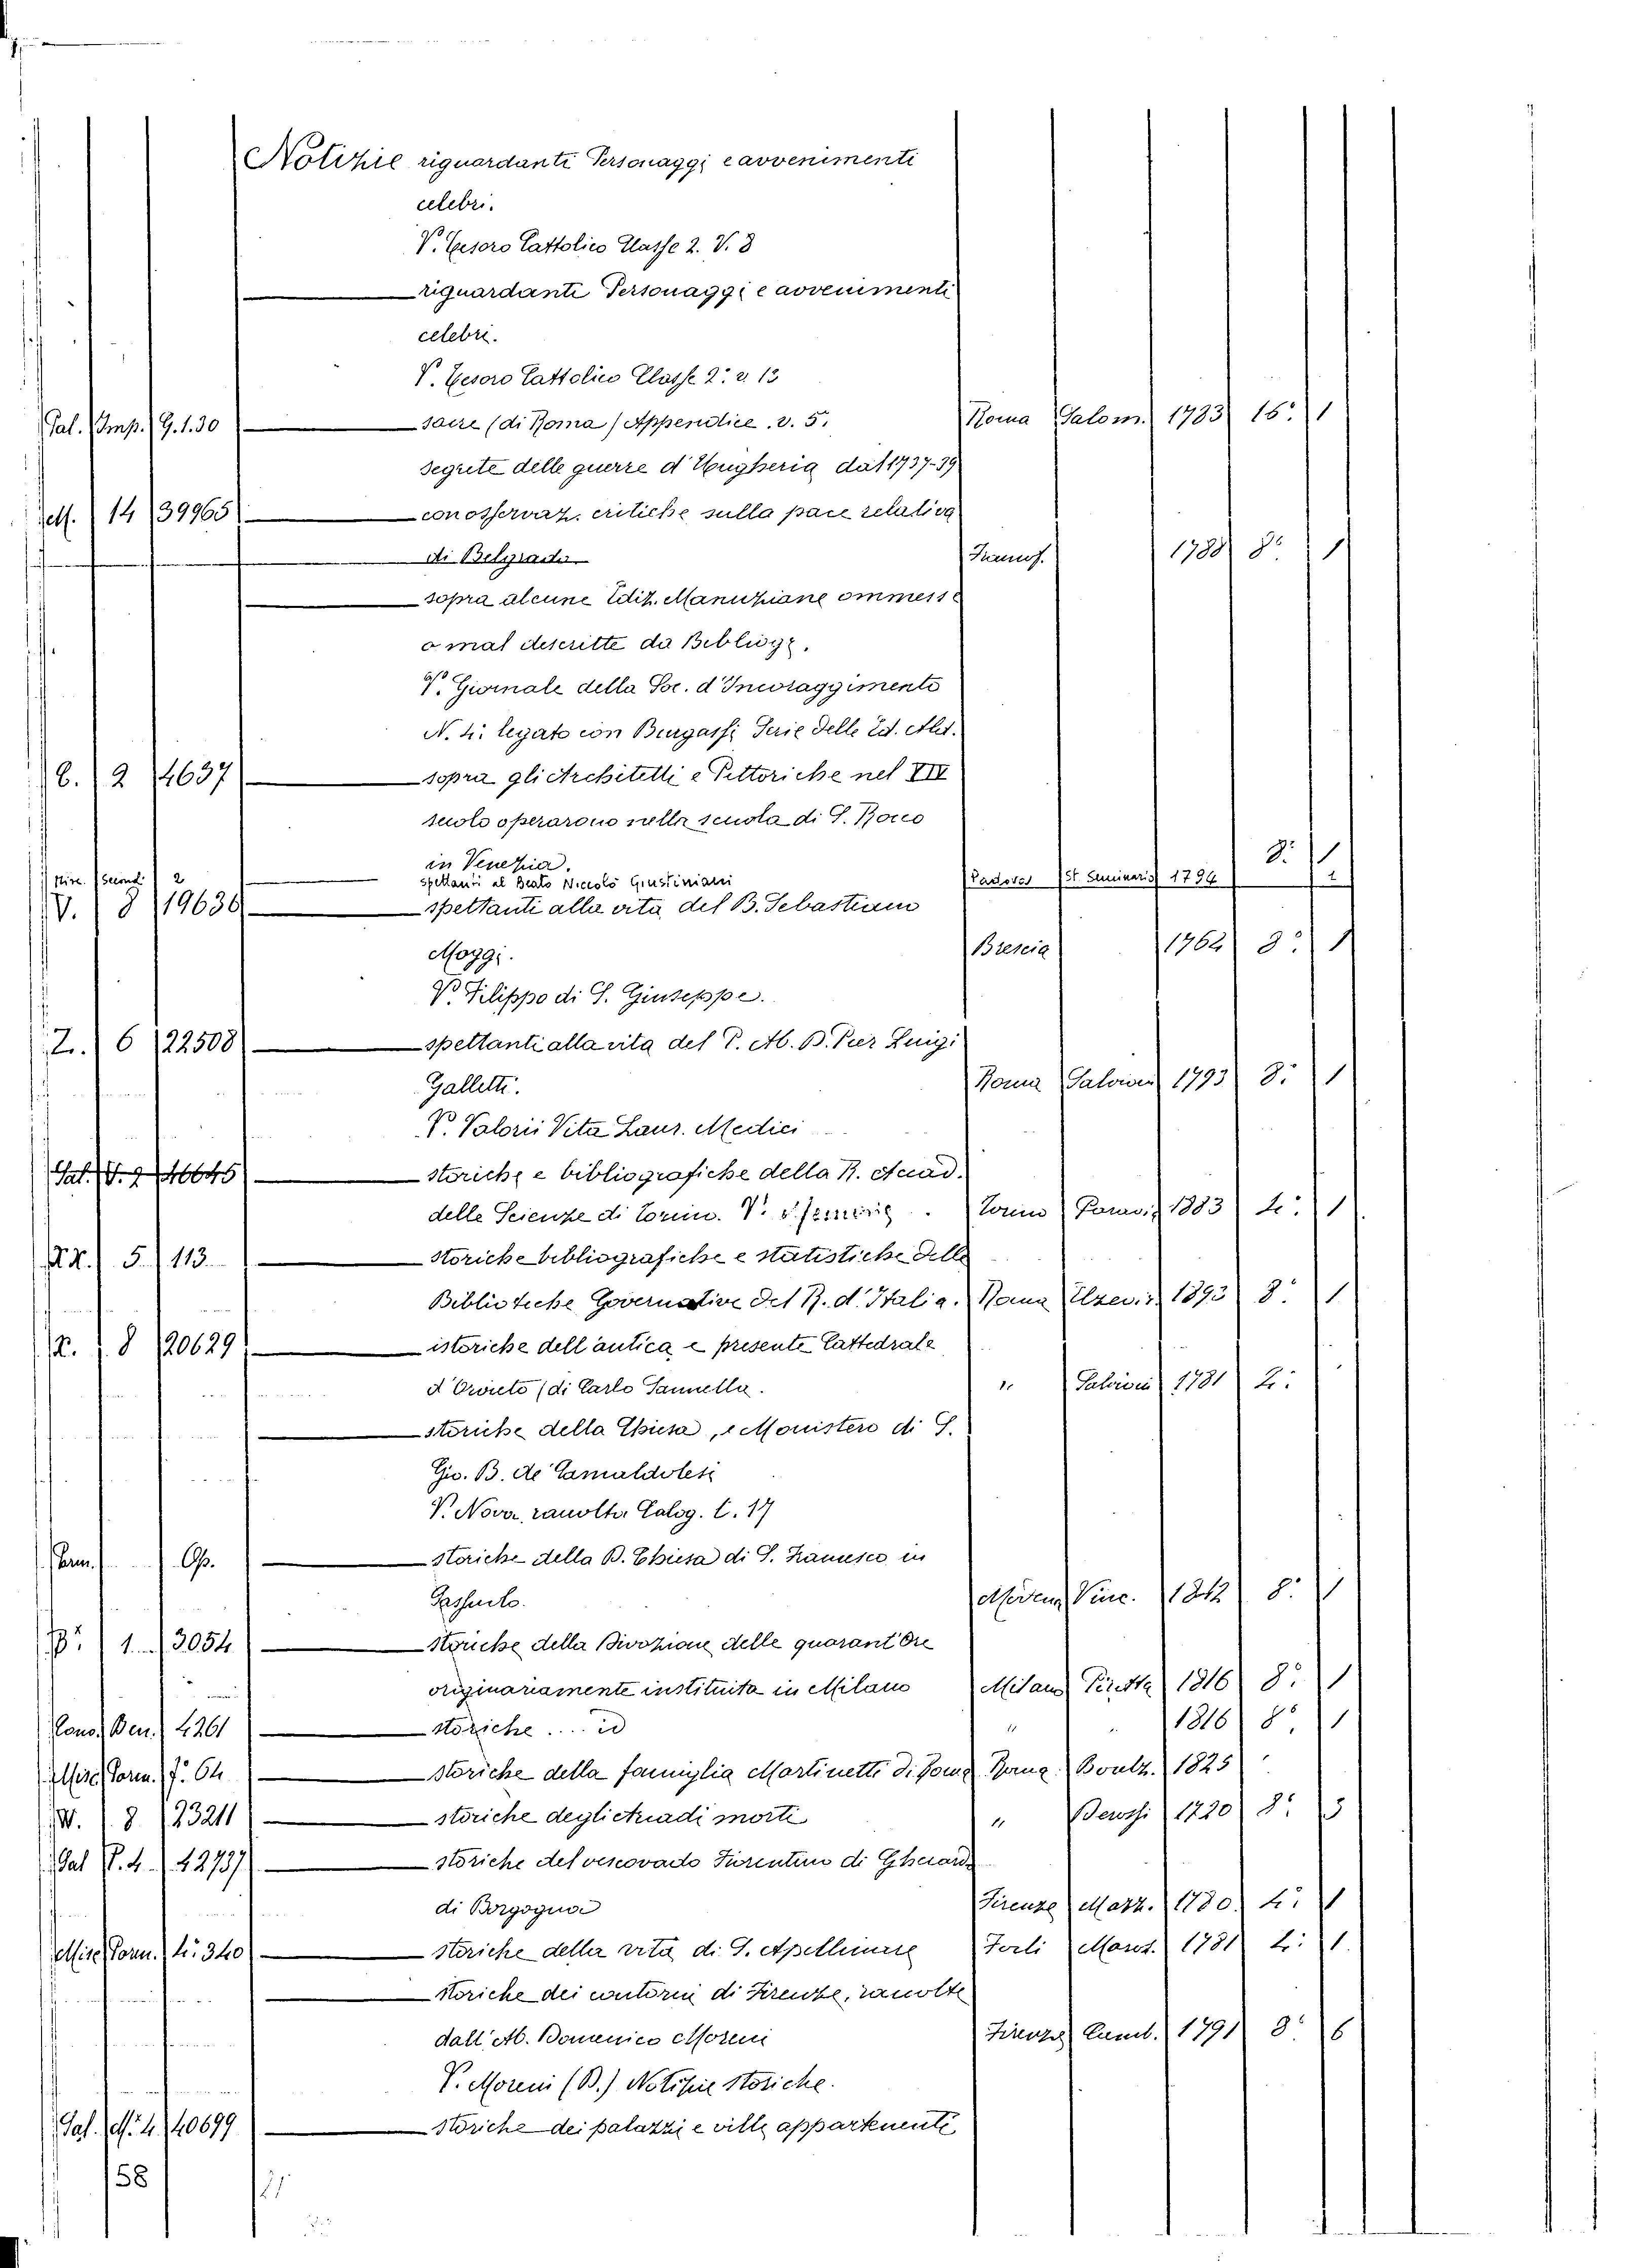 Notizie riguardanti Personaggi e avvenimenti
celebri.
V. Tesoro Cattolico Classe 2. V. 8
riguardanti Personaggi e avvenimenti
celebri.
V. Tesoro Cattolico Classe 2. v. 13
Pal. Imp. G.1.30 sacre (di Roma) Appendice. v. 5. Roma Salom. 1783 16° 1
segrete delle guerre d'Ungheria dal 1737-39
14 39965 con osservaz. critiche sulla pace relativa
di Belgrado 1788 8° 1
sopra alcune Ediz. Manuziane ommesse
o mal descritte da Bibliogr.
V. Giornale della Soc. d'Incoraggimento
N. 4. legato con Burgassi Serie delle Ed. Ald.
C. 2 4637 sopra gli Architetti e Pittori che nel VII
secolo operarono nella scuola di S. Rocco
in Venezia. 8. 1
Mire. Second. 2 spettanti al Beato Niccolò Giustiniani Padova St. Seminario 1794 1
V. 8 19636 spettanti alla vita del B. Sebastiano
Maggi. Brescia 1762 8° 1
V. Filippo di S. Giuseppe.
Z. 6 22508 spettanti alla vita del P. Ab. B. Pier Luigi
Galletti. Roma Salvioni 1793 8. 1
V. Valorii Vita Laur. Medici
Sal. V. 9 40645 storiche e bibliografiche della R. Accad.
delle Scienze di Torino. V. Torino Paravia 1883 4. 1
5 113 storiche bibliografiche e statistiche delle
Biblioteche Governative del R. d'Italia. Roma Elzevir. 1893 8. 1
R. 8 20629 istoriche dell'antica e presente Cattedrale
d'Orvieto (di Carlo Sannella. " Salvioni 1781 4.
storiche della Chiesa, e Monistero di S.
Gio. B. de Camaldolesi
V. Nova raccolta Calog. t. 17
Op. storiche della B. Chiesa di S. Francesco in
Sassuolo. Modena Vinc. 1842 8. 1
B. 1 3054 storiche della Divozione delle quarant'ore
originariamente instituita in Milano Milano Pirotta 1816 8. 1
Cons. Ben. 4261 storiche .... id " " 1816 8° 1
Misc. Torn. 7. 64 storiche della famiglia Martinetti di Roma Roma Boulz. 1825
W. 8 23211 storiche degli Arcadi morti " 1720 8. 3
Sal P. 4 42737 storiche del vescovado Fiorentino di Gherardo
di Borgogna Firenze Mazz. 1780 4. 1
Misc. Torn. 4. 340 storiche della vita di S. Apollinare Forlì Maroz. 1781 4. 1
storiche dei contorni di Firenze, raccolte
dall'Ab. Domenico Moreni Firenze Camb. 1791 8. 6
V. Moreni (B.) Notizie storiche.
Sal. N. 4 40699 storiche dei palazzi e ville appartenenti
58
21